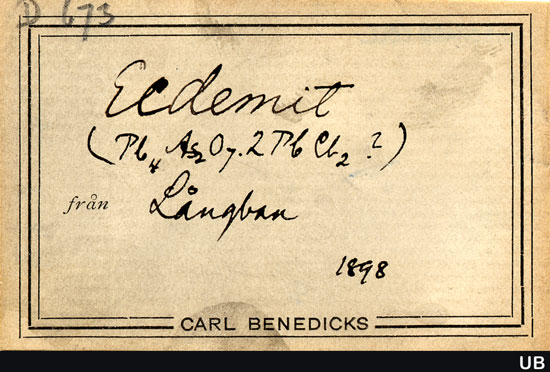 D 673
Ecdemit
(Pb4As2O7.2PbCl2?)
från Långban
1898
CARL BENEDICKS
UB